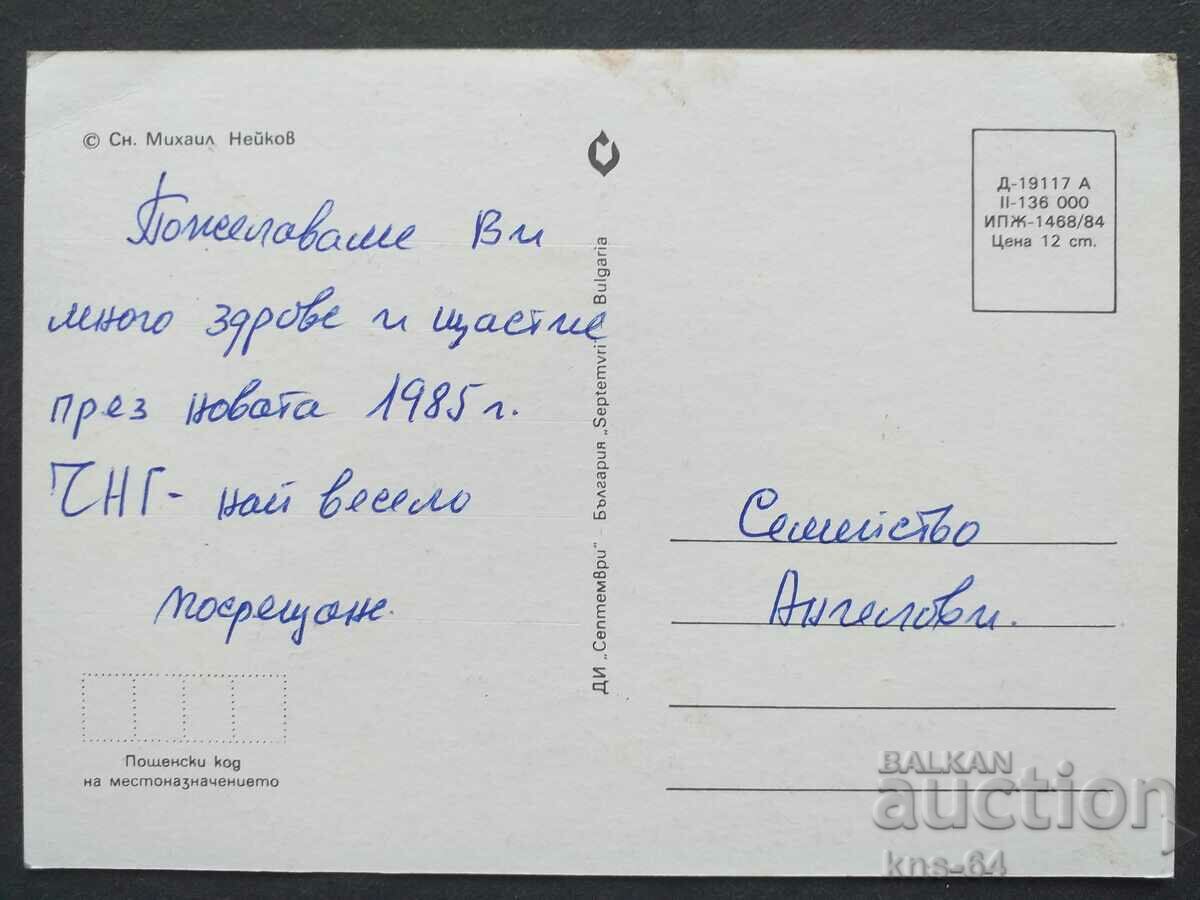 © Сн. Михаил Нейков
Пожелаваме Ви
много здраве и щастие
през новата 1985 г.
ЧНГ - най весело
посрещане.
Пощенски код
на местоназначението
ДИ „Септември“ - България „Septemvri“ Bulgaria
Д-19117 А
II-136 000
ИПЖ-1468/84
Цена 12 ст.
Семейство
Ангелови.
BALKAN
auction
kns-64